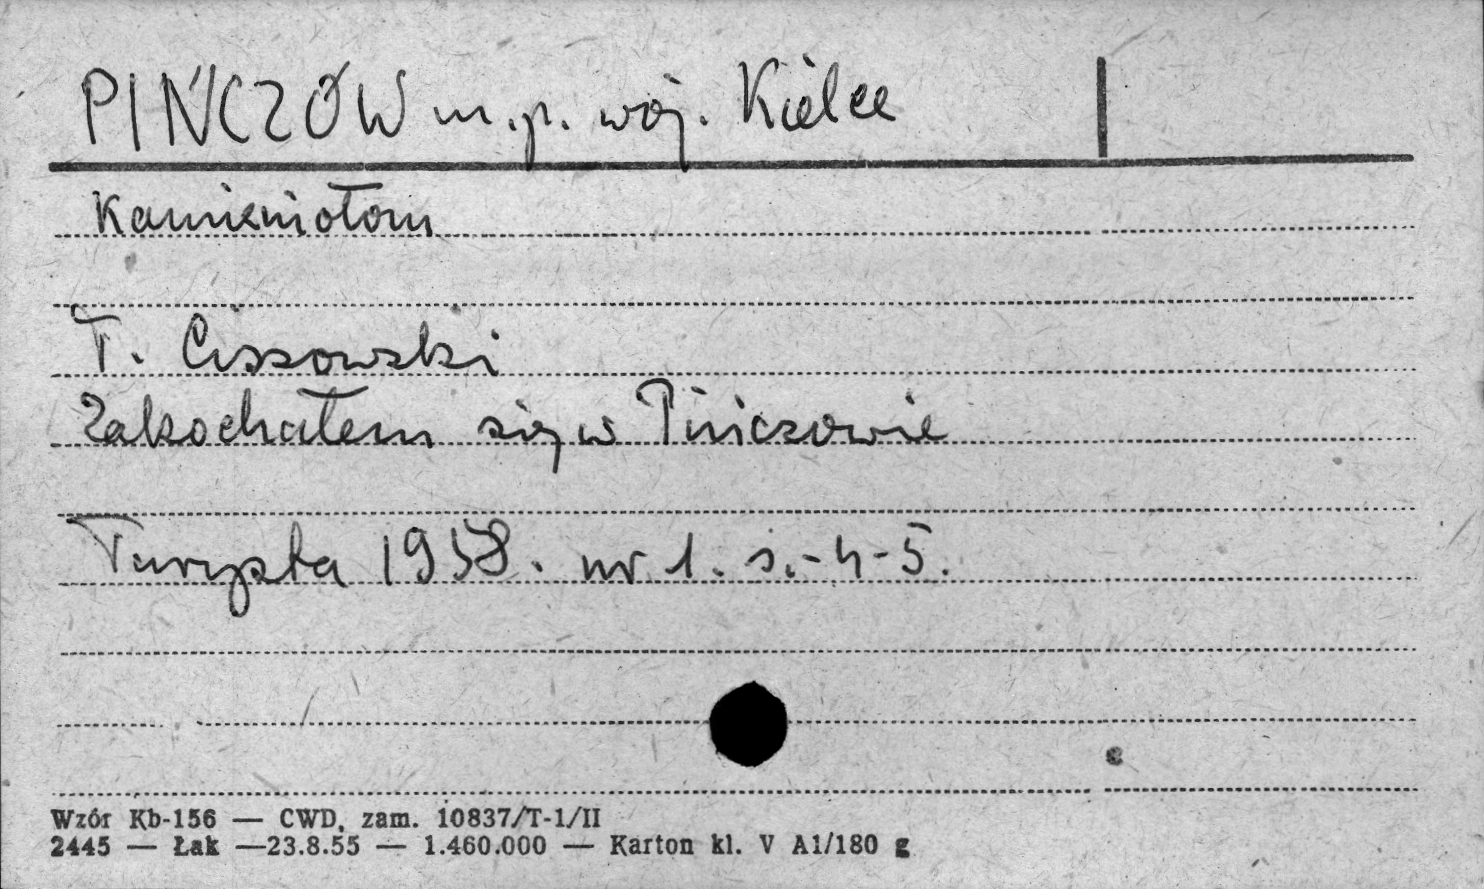 PIŃCZÓW m.p. woj. Kielce
Kamieniołom
T. Cissowski
Zakochałem się w Pińczowie
Turysta 1958. nr 1. s.-4-5.
Wzór Kb-156 — CWD, zam. 10837/T-1/II
2445 — Łak —23.8.55 — 1.460.000 — Karton kl. V A1/180 g